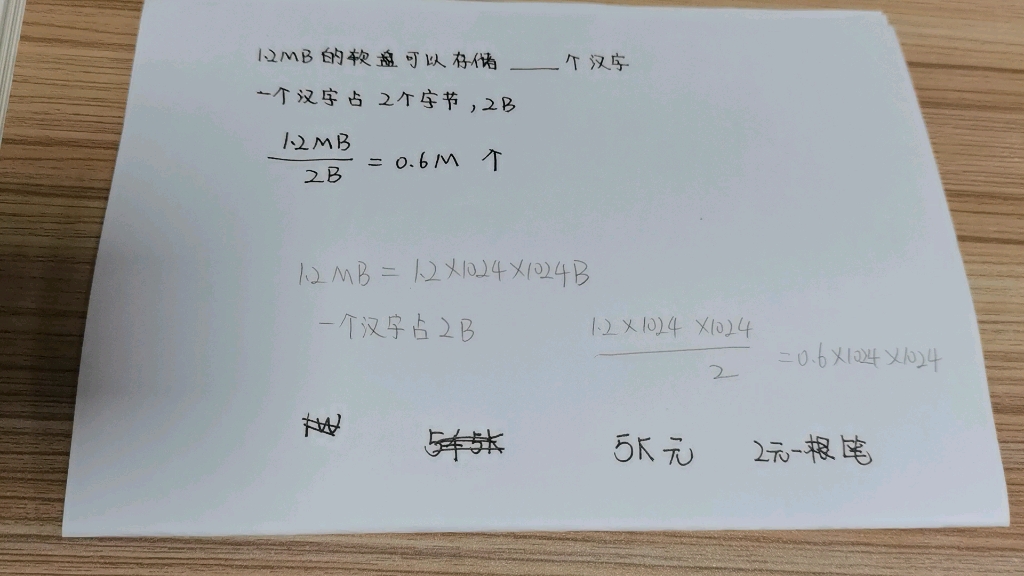 1.2MB的软盘可以存储 ____ 个汉字
一个汉字占 2个字节,2B
1.2MB
2B
= 0.6M 个
1.2MB = 1.2×1024×1024B
一个汉字占2B
1.2×1024×1024
2
=0.6×1024×1024
5K元 2元一根笔